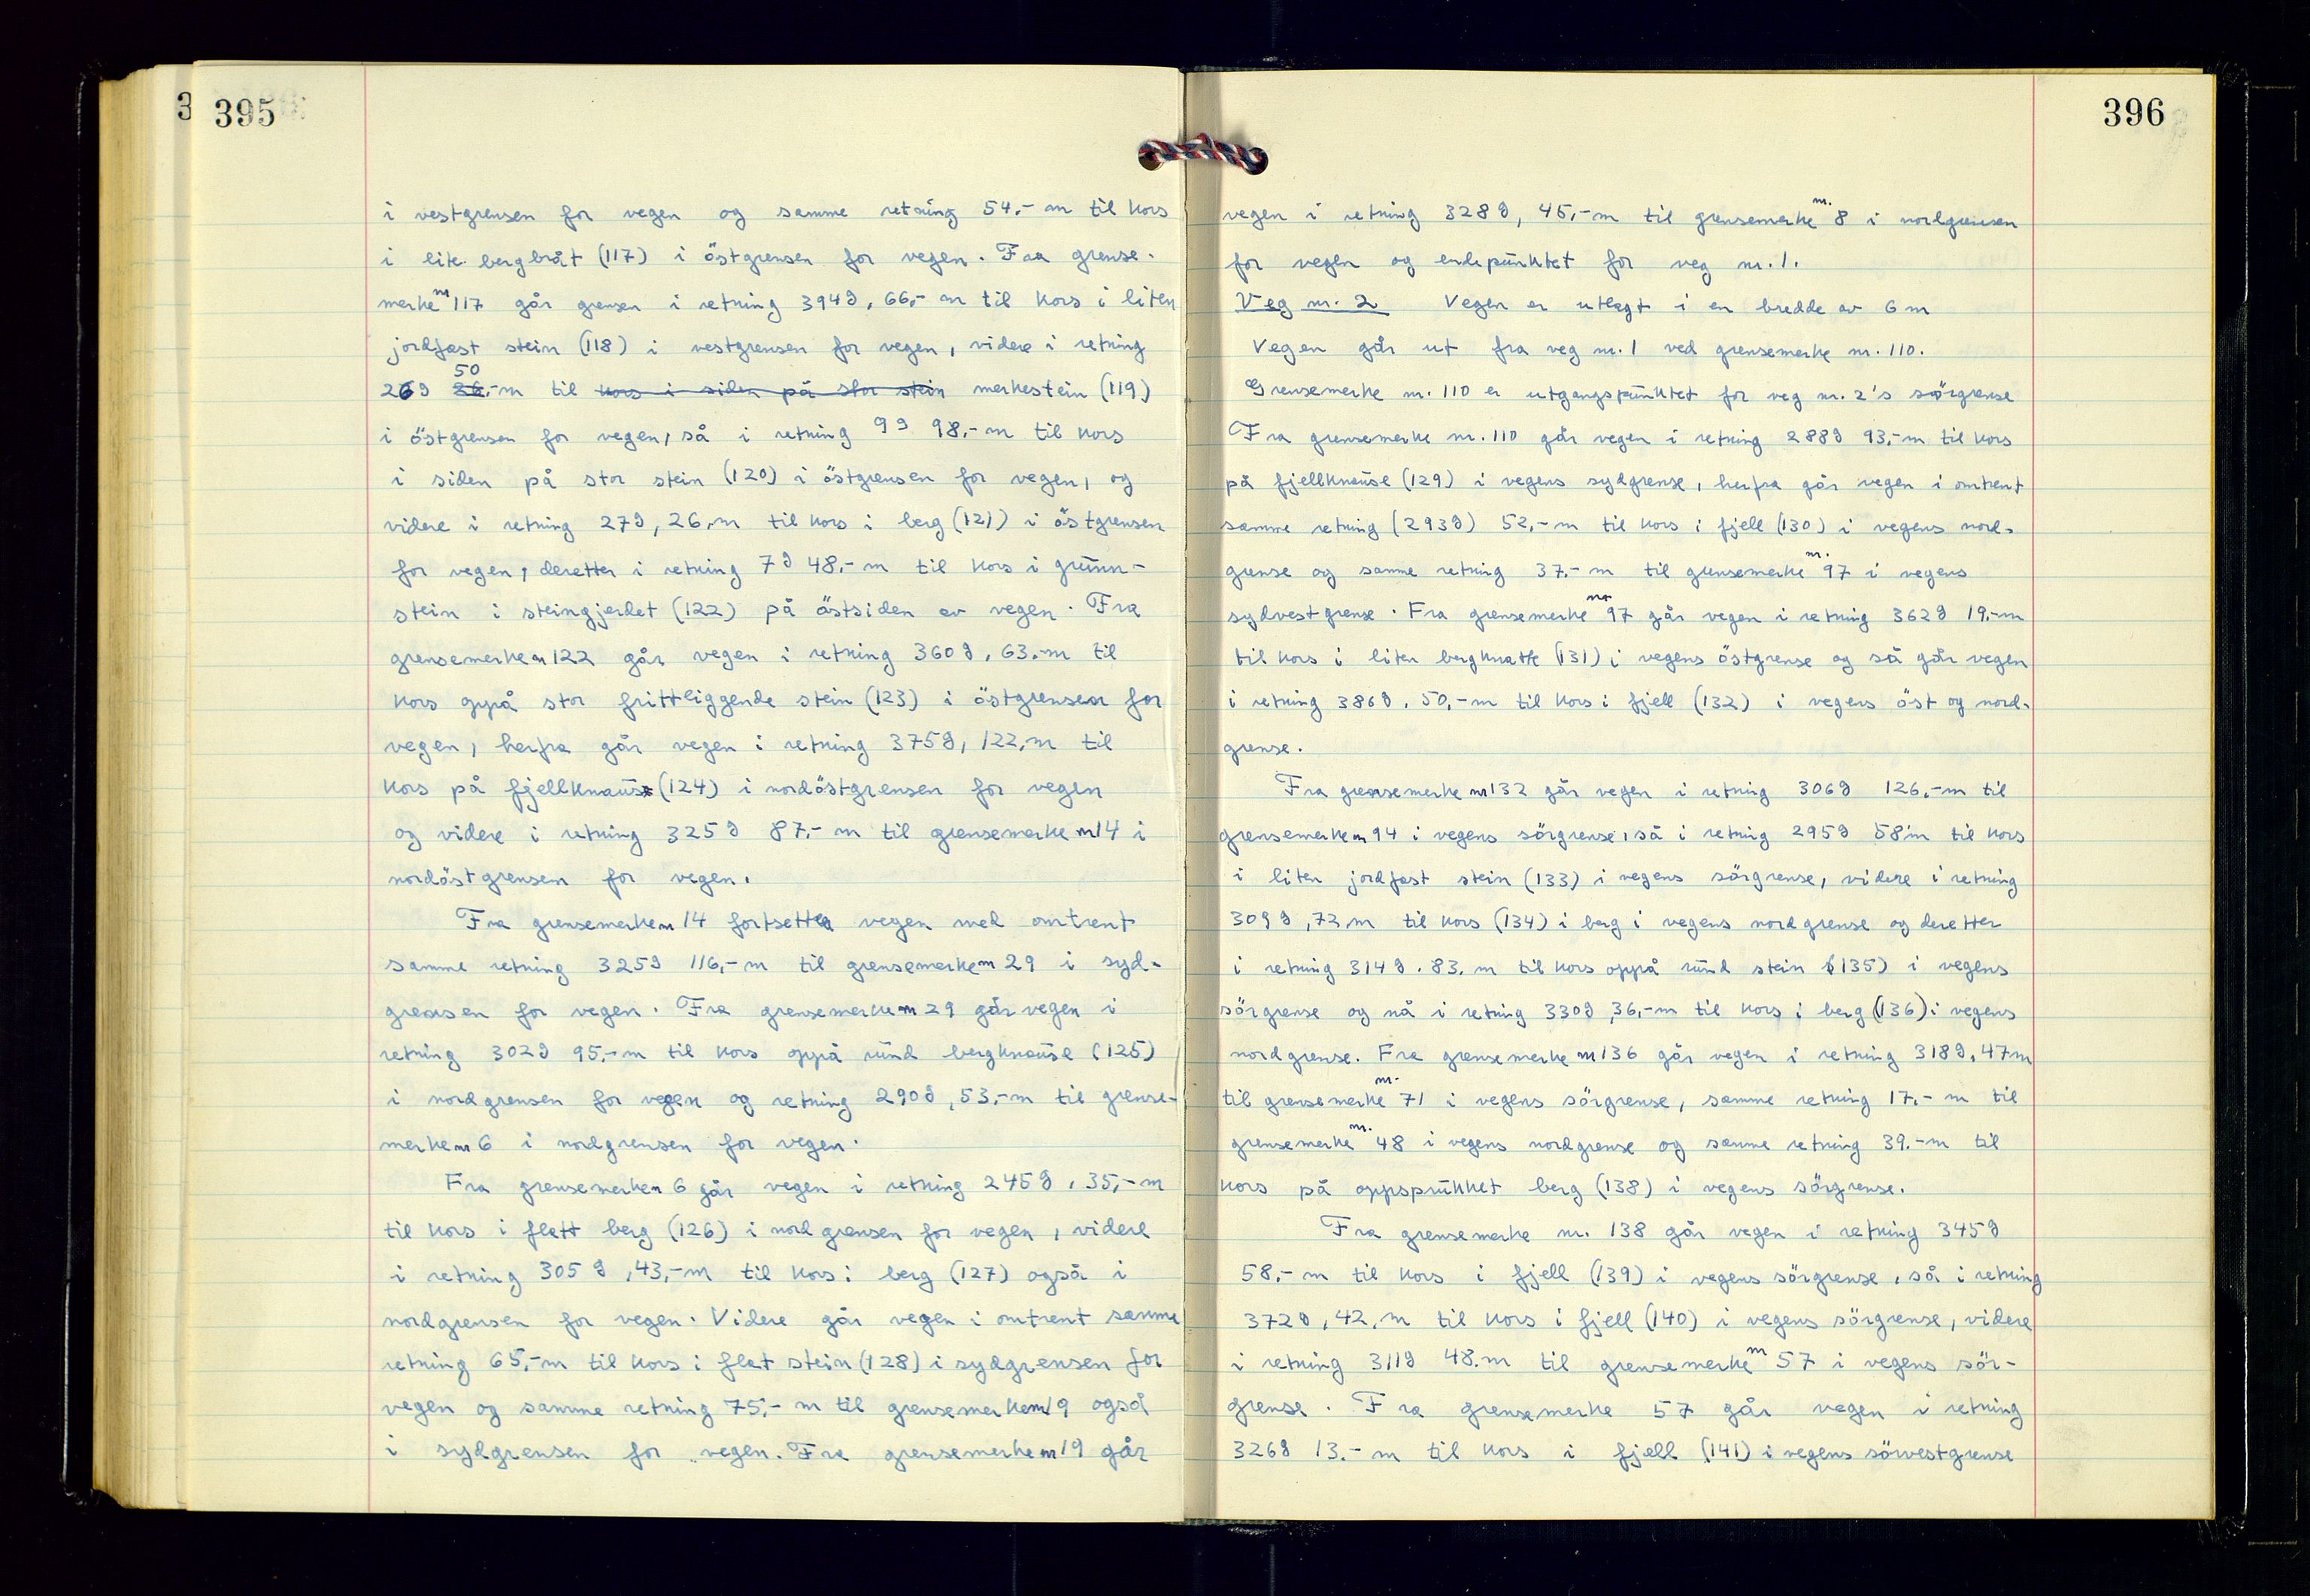 395
i vestgrensen for vegen og samme retning 54.- m til kors
i lite bergbråt (117) i östgrensen for vegen. Fra grense-
merke nr 117 går grensen i retning 394g, 66,- m til kors i liten
jordfast stein (118) i vestgrensen for vegen, videre i retning
50
269 26,-m til kors i siden på stor stein merkestein (119)
i östgrensen for vegen, så i retning 9g 98,-m til kors
i siden på stor stein (120) i östgrensen for vegen, og
videre i retning 27g, 26,m til kors i berg (121) i östgrensen
for vegen, deretter i retning 7g 48,- m til kors i grunn-
stein i steingjerdet (122) på östsiden av vegen. Fra
grensemerke nr 122 går vegen i retning 360g, 63,-m til
kors oppå stor frittliggende stein (123) i östgrensen for
vegen, herfra går vegen i retning 375g, 122,m til
kors på fjellknaus (124) i nordöstgrensen for vegen
og videre i retning 325g 87,- m til grensemerke nr 14 i
nordöstgrensen for vegen.
Fra grensemerke nr 14 fortsetter vegen med omtrent
samme retning 325g 116,-m til grensemerke nr 29 i syd-
grensen for vegen. Fra grensemerke nr 29 går vegen i
retning 302g 95,-m til kors oppå rund bergknause (125)
i nordgrensen for vegen og retning 290g, 53,-m til grense-
merke nr 6 i nordgrensen for vegen.
Fra grensemerke nr 6 går vegen i retning 245g, 35,-m
til kors i flatt berg (126) i nordgrensen for vegen, videre
i retning 305g, 43,-m til kors i berg (127) også i
nordgrensen for vegen. Videre går vegen i omtrent samme
retning 65,-m til kors i flat stein (128) i sydgrensen for
vegen og samme retning 75,- m til grensemerke nr 19 også
i sydgrensen for vegen. Fra grensemerke nr 19 går
396
vegen i retning 328g, 45,-m til grensemerke nr. 8 i nordgrensen
for vegen og endepunktet for veg nr. 1.
Veg nr. 2 Vegen er utlagt i en bredde av 6 m
Vegen går ut fra veg nr. 1 ved grensemerke nr. 110.
Grensemerke nr. 110 er utgangspunktet for veg nr. 2's sörgrense
Fra grensemerke nr. 110 går vegen i retning 288g 93,-m til kors
på fjellknause (129) i vegens sydgrense, herfra går vegen i omtrent
samme retning (293g) 52,-m til kors i fjell (130) i vegens nord-
grense og samme retning 37.- m til grensemerke nr. 97 i vegens
sydvestgrense. Fra grensemerke nr 97 går vegen i retning 362g 19,-m
til kors i liten bergknatte (131) i vegens östgrense og så går vegen
i retning 386g, 50,-m til kors i fjell (132) i vegens öst og nord-
grense.
Fra grensemerke nr 132 går vegen i retning 306g 126,-m til
grensemerke nr 94 i vegens sörgrense, så i retning 295g 58 m til kors
i liten jordfast stein (133) i vegens sörgrense, videre i retning
309g, 72,m til kors (134) i berg i vegens nordgrense og deretter
i retning 314g. 83. m til kors oppå rund stein (135) i vegens
sörgrense og nå i retning 330g, 36,-m til kors i berg (136) i vegens
nordgrense. Fra grensemerke nr 136 går vegen i retning 318g, 47m
til grensemerke nr. 71 i vegens sörgrense, samme retning 17.- m til
grensemerke nr. 48 i vegens nordgrense og samme retning 39.-m til
kors på oppsprukket berg (138) i vegens sörgrense.
Fra grensemerke nr. 138 går vegen i retning 345g
58,- m til kors i fjell (139) i vegens sörgrense, så i retning
372g, 42,m til kors i fjell (140) i vegens sörgrense, videre
i retning 311g 48.m til grensemerke nr 57 i vegens sör-
grense. Fra grensemerke 57 går vegen i retning
326g 13.- m til kors i fjell (141) i vegens sörvestgrense